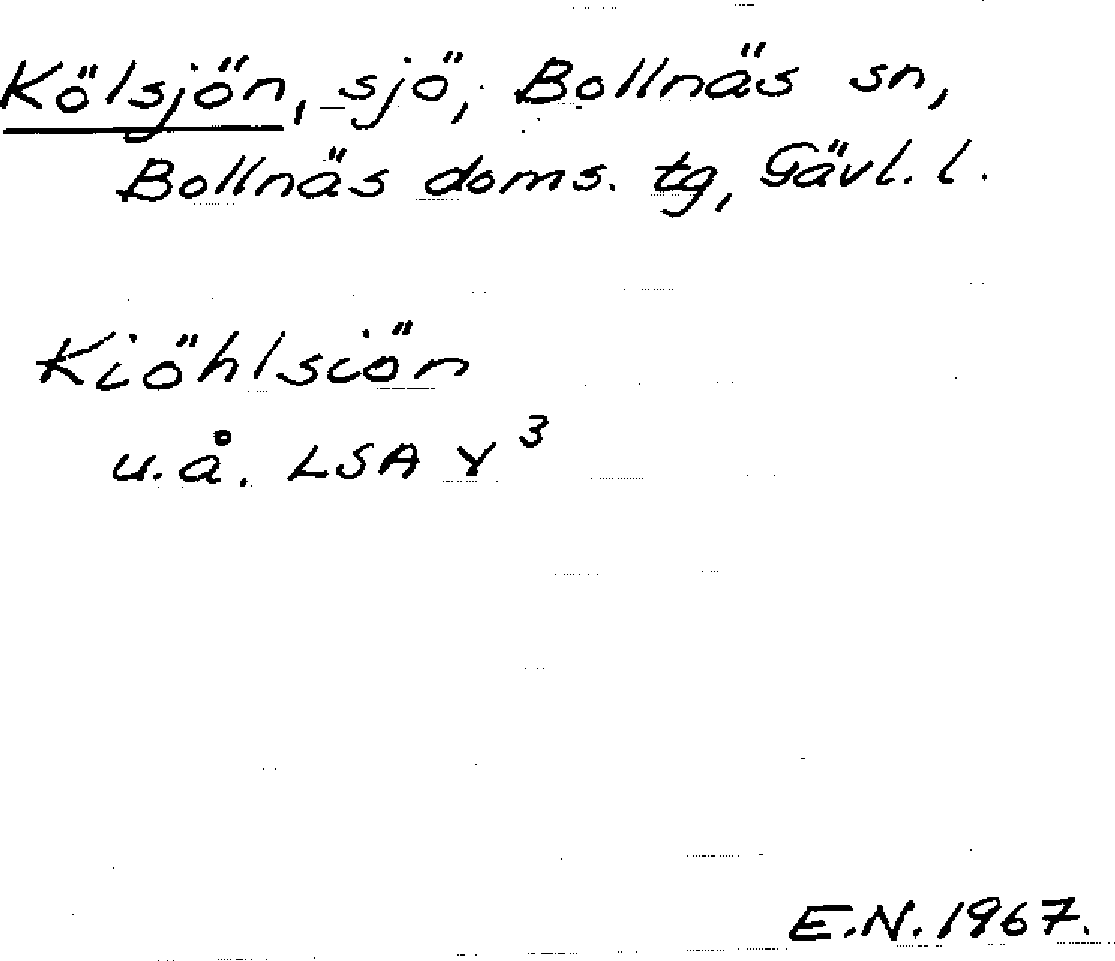 Kölsjön, sjö, Bollnäs sn,
Bollnäs doms. tg, Gävl. l.
Kiöhlsiön
u.å. LSA Y³
E.N. 1967.